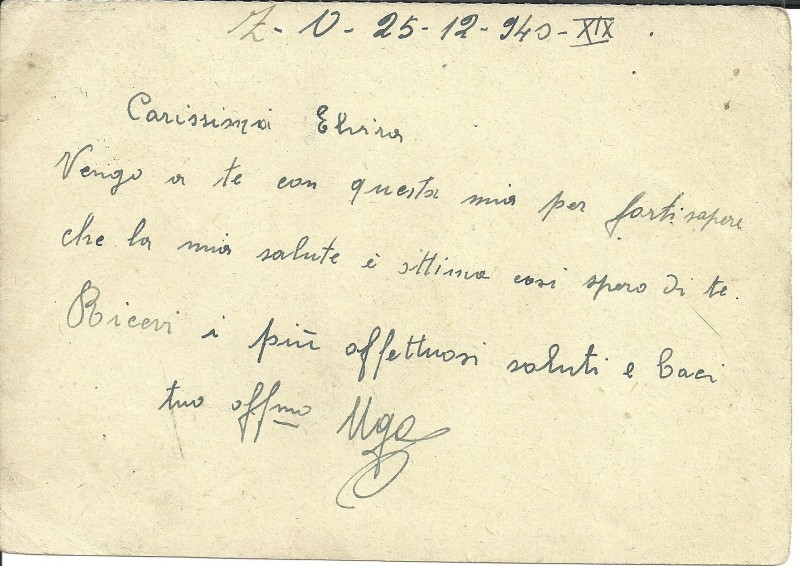 Z-O-25-12-940-XIX
Carissima Elvira
Vengo a te con questa mia per farti sapere
che la mia salute è ottima cosi spero di te.
Ricevi i più affettuosi saluti e baci
tuo affmo Ugo